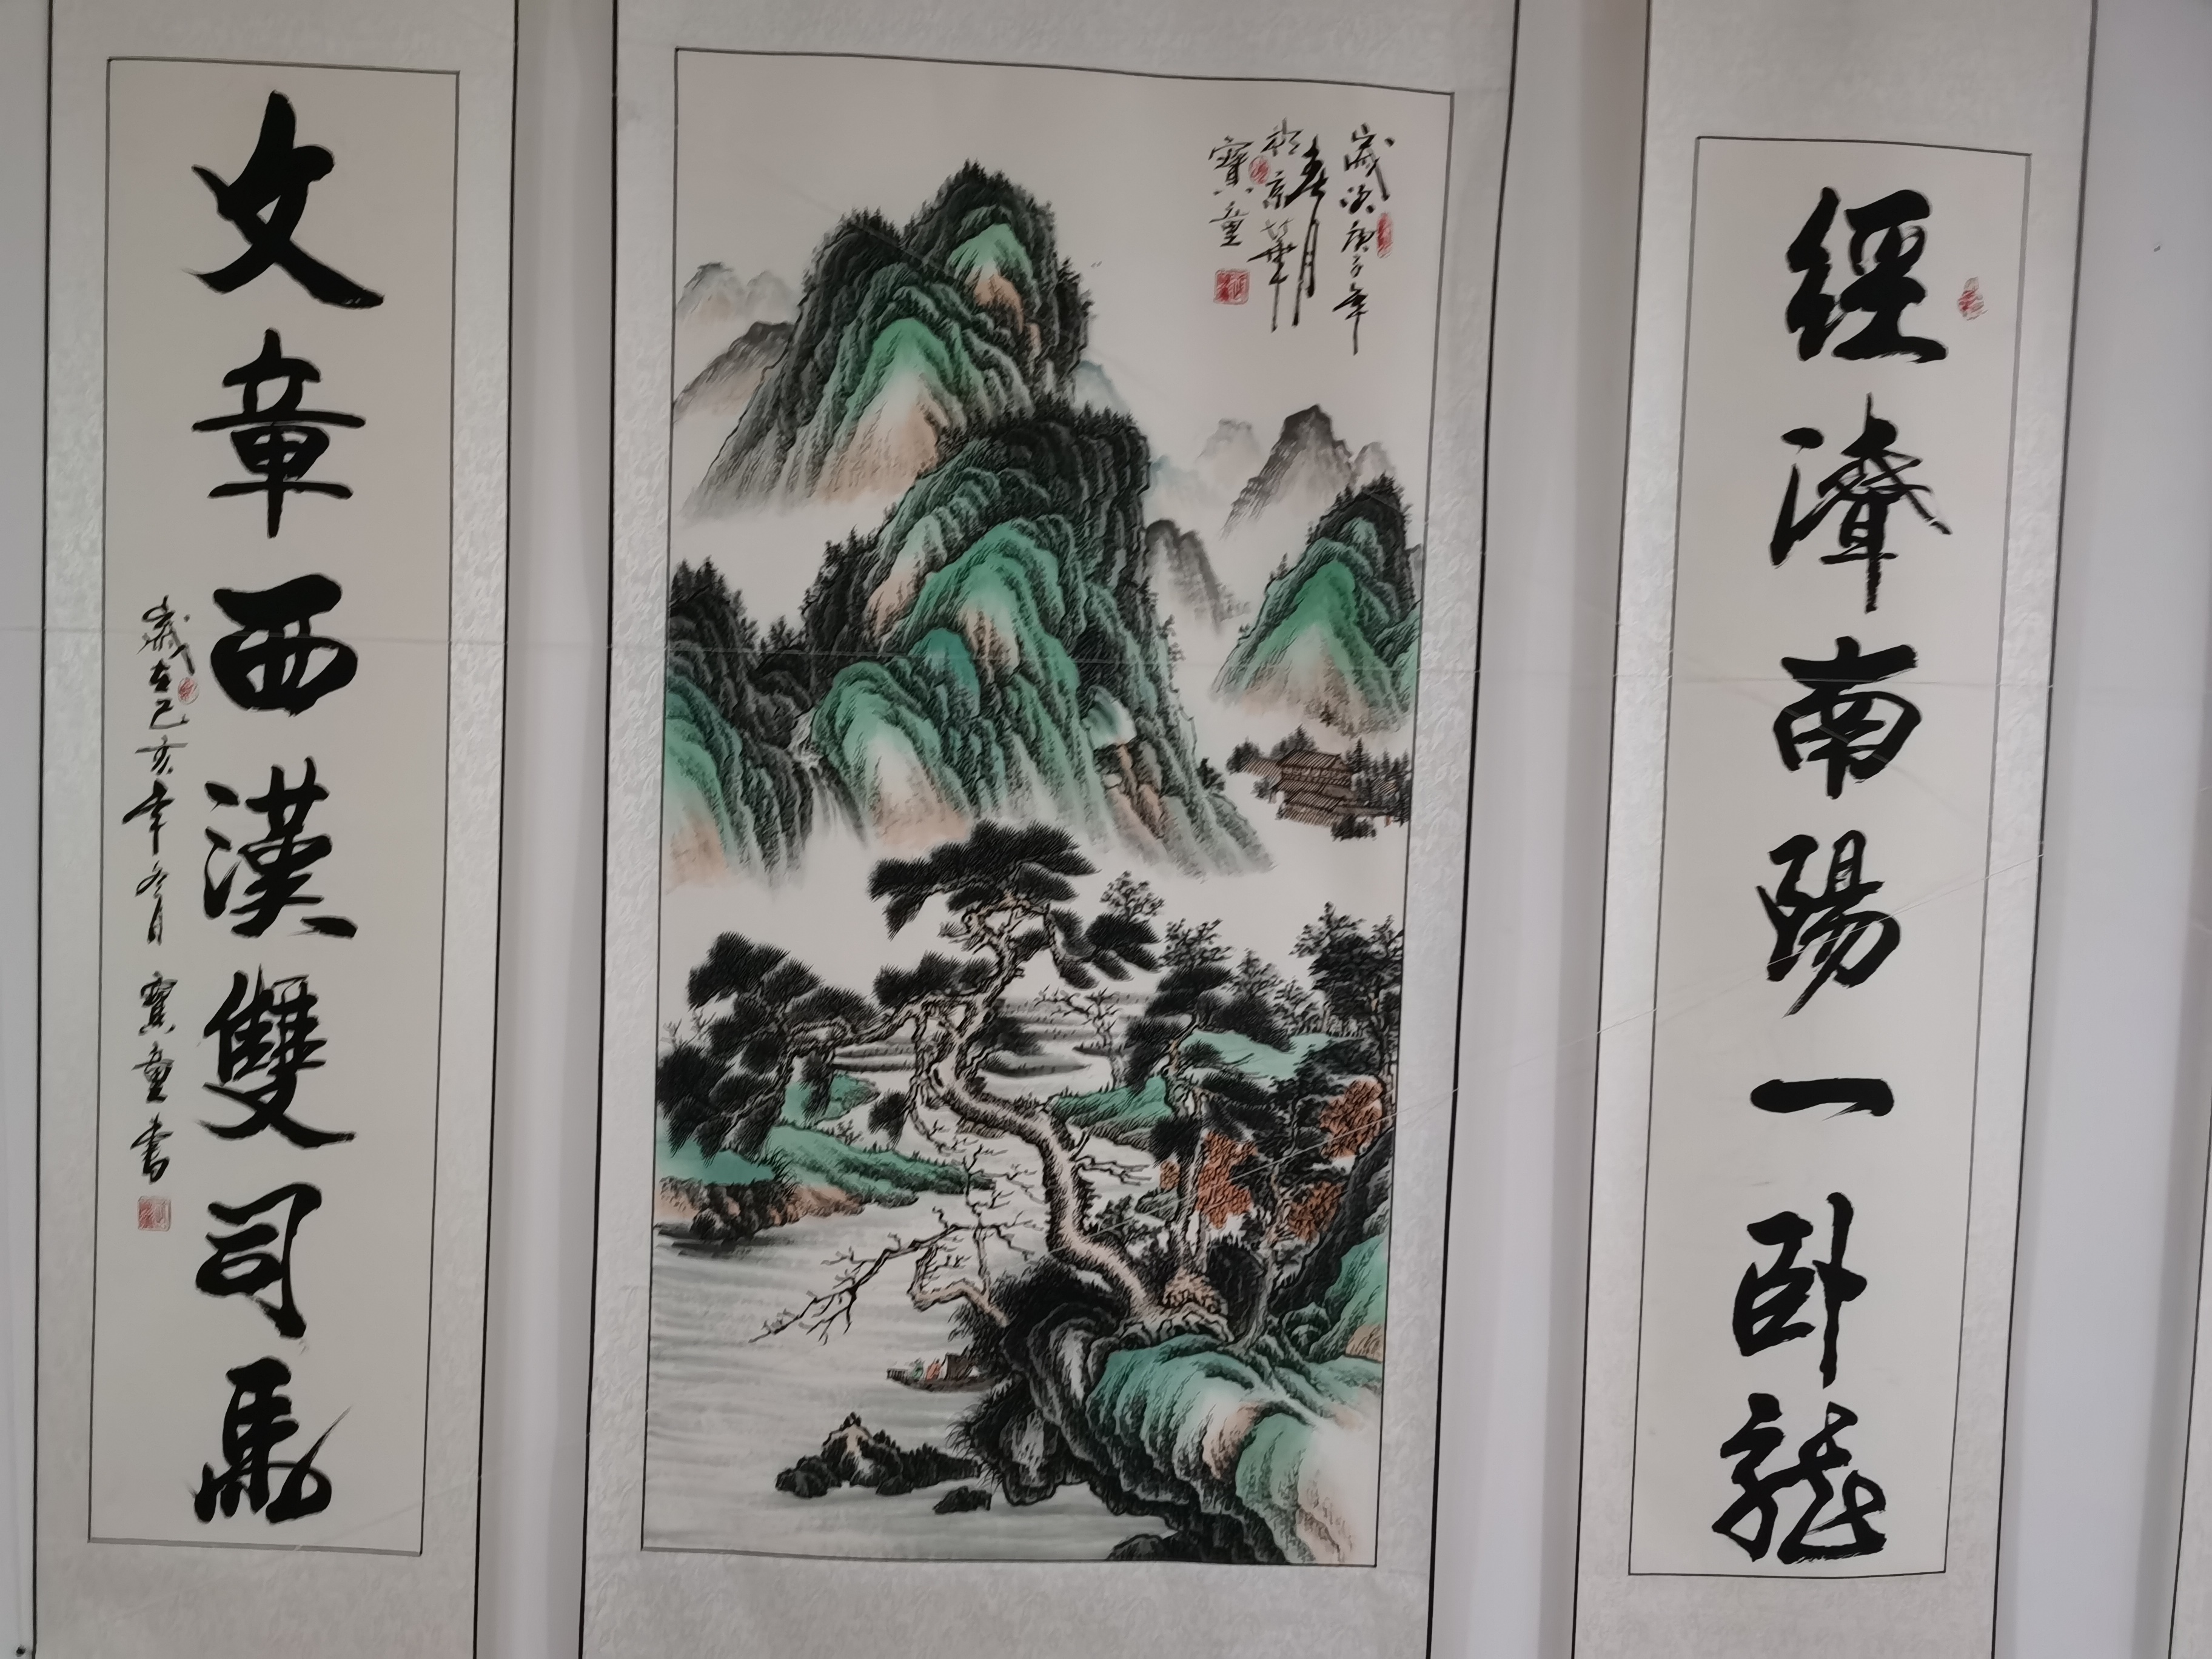 經濟南陽一卧龍
歲次庚子年
春月
於京華
寶童
文章西漢雙司馬
歲在己亥年冬月 寶童書